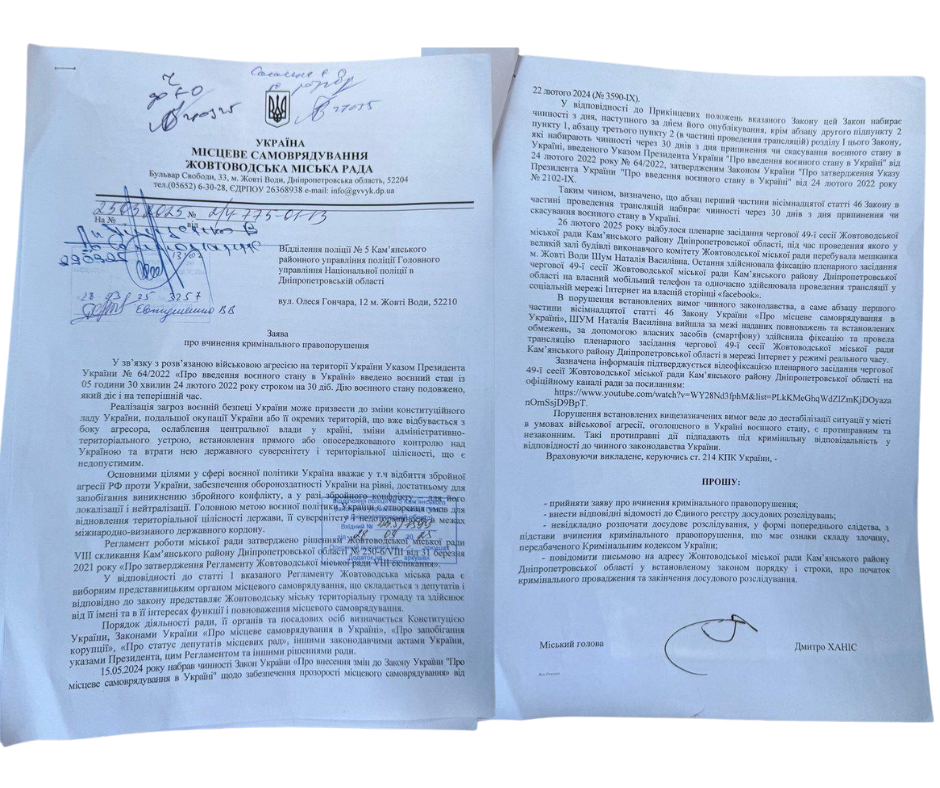 УКРАЇНА
МІСЦЕВЕ САМОВРЯДУВАННЯ
ЖОВТОВОДСЬКА МІСЬКА РАДА
Бульвар Свободи, 33, м. Жовті Води, Дніпропетровська область, 52204
тел.(05652) 6-30-28, ЄДРПОУ 26368938 e-mail: info@gvvyk.dp.ua
На №
Відділення поліції № 5 Кам'янського
районного управління поліції Головного
управління Національної поліції в
Дніпропетровській області
вул. Олеся Гончара, 12 м. Жовті Води, 52210
Заява
про вчинення кримінального правопорушення
У зв'язку з розв'язаною військовою агресією на території України Указом Президента
України № 64/2022 «Про введення воєнного стану в Україні» введено воєнний стан із
05 години 30 хвилин 24 лютого 2022 року строком на 30 діб. Дію воєнного стану подовжено,
який діє і на теперішній час.
Реалізація загроз воєнній безпеці України може призвести до зміни конституційного
ладу України, подальшої окупації України або її окремих територій, що вже відбувається з
боку агресора, ослаблення центральної влади у країні, зміни адміністративно-
територіального устрою, встановлення прямого або опосередкованого контролю над
Україною та втрати нею державного суверенітету і територіальної цілісності, що є
недопустимим.
Основними цілями у сфері воєнної політики Україна вважає у т.ч відбиття збройної
агресії РФ проти України, забезпечення обороноздатності України на рівні, достатньому для
запобігання виникненню збройного конфлікту, а у разі збройного конфлікту – для його
локалізації і нейтралізації. Головною метою воєнної політики України є створення умов для
відновлення територіальної цілісності держави, її суверенітету і недоторканності в межах
міжнародно-визнаного державного кордону.
Регламент роботи міської ради затверджено рішенням Жовтоводської міської ради
VIII скликання Кам'янського району Дніпропетровської області № 250-6/VIII від 31 березня
2021 року «Про затвердження Регламенту Жовтоводської міської ради VIII скликання».
У відповідності до статті 1 вказаного Регламенту Жовтоводська міська рада є
виборним представницьким органом місцевого самоврядування, що складається з депутатів і
відповідно до закону представляє Жовтоводську міську територіальну громаду та здійснює
від її імені та в її інтересах функції і повноваження місцевого самоврядування.
Порядок діяльності ради, її органів та посадових осіб визначається Конституцією
України, Законами України «Про місцеве самоврядування в Україні», «Про запобігання
корупції», «Про статус депутатів місцевих рад», іншими законодавчими актами України,
указами Президента, цим Регламентом та іншими рішеннями ради.
15.05.2024 року набрав чинності Закон України «Про внесення змін до Закону України "Про
місцеве самоврядування в Україні" щодо забезпечення прозорості місцевого самоврядування» від
22 лютого 2024 (№ 3590-IX).
У відповідності до Прикінцевих положень вказаного Закону цей Закон набирає
чинності з дня, наступного за днем його опублікування, крім абзацу другого підпункту 2
пункту 1, абзацу третього пункту 2 (в частині проведення трансляції) розділу І цього Закону,
які набирають чинності через 30 днів з дня припинення чи скасування воєнного стану в
Україні, введеного Указом Президента України "Про введення воєнного стану в Україні" від
24 лютого 2022 року № 64/2022, затвердженим Законом України "Про затвердження Указу
Президента України "Про введення воєнного стану в Україні" від 24 лютого 2022 року
№ 2102-IX.
Таким чином, визначено, що абзац перший частини вісімнадцятої статті 46 Закону в
частині проведення трансляції набирає чинності через 30 днів з дня припинення чи
скасування воєнного стану в Україні.
26 лютого 2025 року відбулося пленарне засідання чергової 49-ї сесії Жовтоводської
міської ради Кам'янського району Дніпропетровської області, під час проведення якого у
великій залі будівлі виконавчого комітету Жовтоводської міської ради перебувала мешканка
м. Жовті Води Шум Наталія Василівна. Остання здійснювала фіксацію пленарного засідання
чергової 49-ї сесії Жовтоводської міської ради Кам'янського району Дніпропетровської
області на власний мобільний телефон та одночасно здійснювала проведення трансляції у
соціальній мережі Інтернет на власній сторінці «facebook».
В порушення встановлених вимог чинного законодавства, а саме абзацу першого
частини вісімнадцятої статті 46 Закону України «Про місцеве самоврядування в
Україні», ШУМ Наталія Василівна вийшла за межі наданих повноважень та встановлених
обмежень, за допомогою власних засобів (смартфону) здійснила фіксацію та провела
трансляцію пленарного засідання чергової 49-ї сесії Жовтоводської міської ради
Кам'янського району Дніпропетровської області в мережі Інтернет у режимі реального часу.
Зазначена інформація підтверджується відеофіксацією пленарного засідання чергової
49-ї сесії Жовтоводської міської ради Кам'янського району Дніпропетровської області на
офіційному каналі ради за посиланням:
https://www.youtube.com/watch?v=WY28Nd3fphM&list=PLkKMeGhqWdZIZmKjDOyaza
nOmSsjD9BpT.
Порушення встановлених вищезазначених вимог веде до дестабілізації ситуації у місті
в умовах військової агресії, оголошеного в Україні воєнного стану, є протиправним та
незаконним. Такі протиправні дії підпадають під кримінальну відповідальність у
відповідності до чинного законодавства України.
Враховуючи викладене, керуючись ст. 214 КПК України, -
ПРОШУ:
- прийняти заяву про вчинення кримінального правопорушення;
- внести відповідні відомості до Єдиного реєстру досудових розслідувань;
- невідкладно розпочати досудове розслідування, у формі попереднього слідства, з
підстави вчинення кримінального правопорушення, що має ознаки складу злочину,
передбаченого Кримінальним кодексом України;
- повідомити письмово на адресу Жовтоводської міської ради Кам'янського району
Дніпропетровської області у встановленому законом порядку і строки, про початок
кримінального провадження та закінчення досудового розслідування.
Міський голова
Дмитро ХАНІС